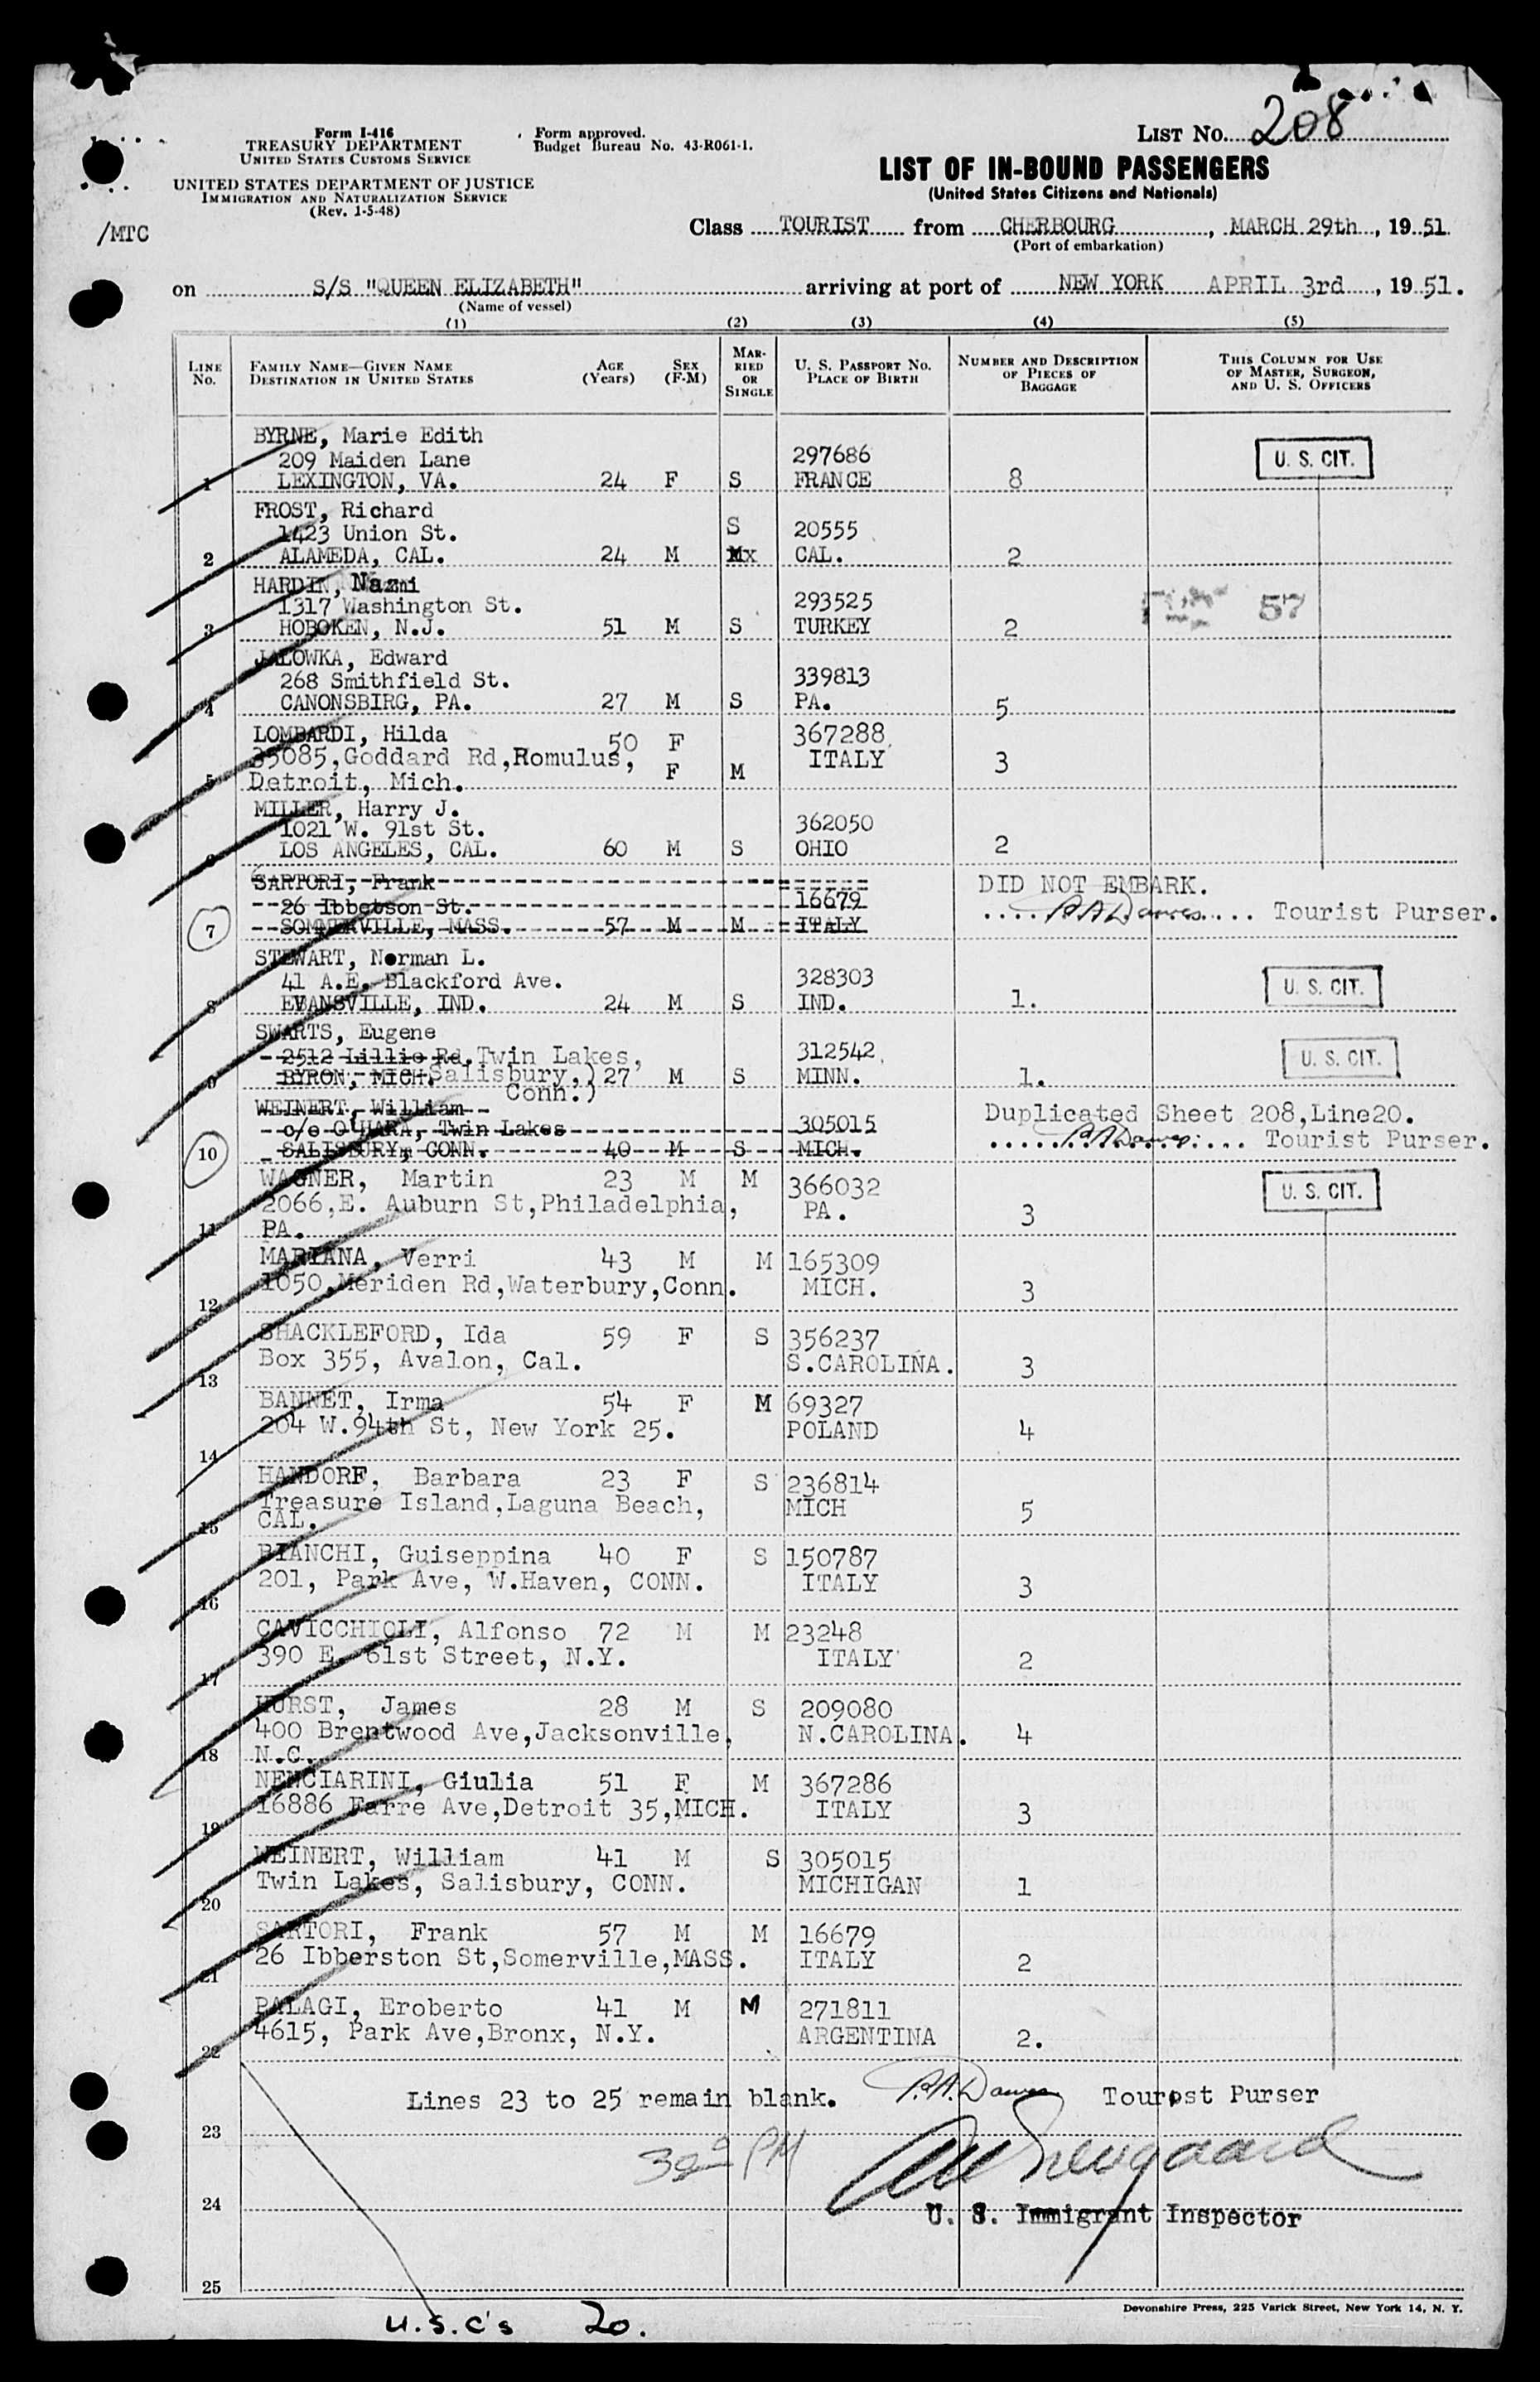 LIST NO. 208
Form I-416
TREASURY DEPARTMENT
UNITED STATES CUSTOMS SERVICE
Form approved.
Budget Bureau No. 43-R061-1.
UNITED STATES DEPARTMENT OF JUSTICE
IMMIGRATION AND NATURALIZATION SERVICE
(Rev. 1-5-48)
LIST OF IN-BOUND PASSENGERS
(United States Citizens and Nationals)
/MTC
Class TOURIST from CHERBOURG, MARCH 29th, 1951
(Port of embarkation)
on S/S "QUEEN ELIZABETH" arriving at port of NEW YORK APRIL 3rd, 1951.
(Name of vessel)
(1) (2) (3) (4) (5)
LINE No. FAMILY NAME—GIVEN NAME DESTINATION IN UNITED STATES AGE (Years) SEX (F-M) MARRIED OR SINGLE U. S. PASSPORT NO. PLACE OF BIRTH NUMBER AND DESCRIPTION OF PIECES OF BAGGAGE THIS COLUMN FOR USE OF MASTER, SURGEON, AND U. S. OFFICERS
BYRNE, Marie Edith
209 Maiden Lane 297686 U. S. CIT.
1 LEXINGTON, VA. 24 F S FRANCE 8
FROST, Richard
1423 Union St. S 20555
2 ALAMEDA, CAL. 24 M Mx CAL. 2
HARDIN, Nazmi
1317 Washington St. 293525 57
3 HOBOKEN, N.J. 51 M S TURKEY 2
JALOWKA, Edward
268 Smithfield St. 339813
4 CANONSBIRG, PA. 27 M S PA. 5
LOMBARDI, Hilda 50 F 367288
35085, Goddard Rd, Romulus, ITALY 3
5 Detroit, Mich. F M
MILLER, Harry J.
1021 W. 91st St. 362050
6 LOS ANGELES, CAL. 60 M S OHIO 2
SARTORI, Frank DID NOT EMBARK.
26 Ibbetson St. 16679 P.A.Dawes Tourist Purser.
7 SOMMERVILLE, MASS. 57 M M ITALY
STEWART, Norman L.
41 A.E. Blackford Ave. 328303 U. S. CIT.
8 EVANSVILLE, IND. 24 M S IND. 1.
SWARTS, Eugene
2512 Lillie Rd. Twin Lakes, 312542 U. S. CIT.
9 BYRON, MICH. Salisbury,) 27 M S MINN. 1.
Conn.)
WEINERT, William Duplicated Sheet 208, Line20.
c/o O'HARA, Twin Lakes 305015 P.A.Dawes Tourist Purser.
10 SALISBURY, CONN. 40 M S MICH.
WAGNER, Martin 23 M M 366032 U. S. CIT.
2066, E. Auburn St, Philadelphia, PA. 3
11 PA.
MARIANA, Verri 43 M M 165309
1050, Meriden Rd, Waterbury, Conn. MICH. 3
12
SHACKLEFORD, Ida 59 F S 356237
Box 355, Avalon, Cal. S.CAROLINA. 3
13
BANNET, Irma 54 F M 69327
204 W.94th St, New York 25. POLAND 4
14
HANDORF, Barbara 23 F S 236814
Treasure Island, Laguna Beach, MICH 5
15 CAL.
BIANCHI, Guiseppina 40 F S 150787
201, Park Ave, W.Haven, CONN. ITALY 3
16
CAVICCHIOLI, Alfonso 72 M M 23248
390 E. 61st Street, N.Y. ITALY 2
17
HURST, James 28 M S 209080
400 Brentwood Ave, Jacksonville, N.CAROLINA. 4
18 N.C.
NENCIARINI, Giulia 51 F M 367286
16886 Farre Ave, Detroit 35, MICH. ITALY 3
19
WEINERT, William 41 M S 305015
Twin Lakes, Salisbury, CONN. MICHIGAN 1
20
SARTORI, Frank 57 M M 16679
26 Ibberston St, Somerville, MASS. ITALY 2
21
PALAGI, Eroberto 41 M M 271811
4615, Park Ave, Bronx, N.Y. ARGENTINA 2.
22
Lines 23 to 25 remain blank. P.A.Dawes Tourist Purser
23
PM
24
U. S. Immigrant Inspector
25
Devonshire Press, 225 Varick Street, New York 14, N. Y.
U.S.C's 20.